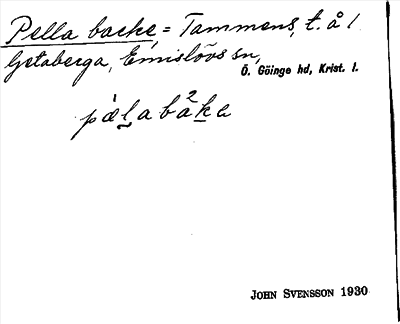 Pella backe, = Tammens, t. å 1
Getaberga, Emislövs sn,
Ö. Göinge hd, Krist. l.
pæ̀l̠abá²k̠a
JOHN SVENSSON 1930